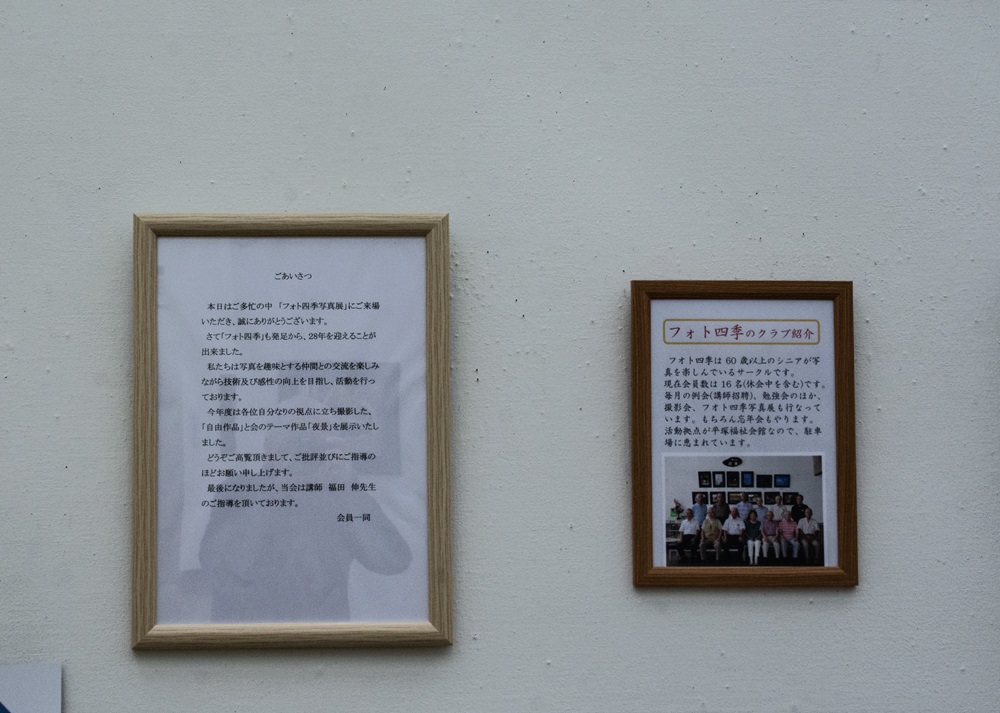 ごあいさつ
本日はご多忙の中 「フォト四季写真展」にご来場
いただき、誠にありがとうございます。
さて「フォト四季」も発足から、28年を迎えることが
出来ました。
私たちは写真を趣味とする仲間との交流を楽しみ
ながら技術及び感性の向上を目指し、活動を行っ
ております。
今年度は各位自分なりの視点に立ち撮影した、
「自由作品」と会のテーマ作品「夜景」を展示いたし
ました。
どうぞご高覧頂きまして、ご批評並びにご指導の
ほどお願い申し上げます。
最後になりましたが、当会は講師 福田 伸先生
のご指導を頂いております。
会員一同
フォト四季のクラブ紹介
フォト四季は 60 歳以上のシニアが写
真を楽しんでいるサークルです。
現在会員数は 16 名(休会中を含む)です。
毎月の例会(講師招聘)、勉強会のほか、
撮影会、フォト四季写真展も行なって
います。もちろん忘年会もやります。
活動拠点が平塚福祉会館なので、駐車
場に恵まれています。